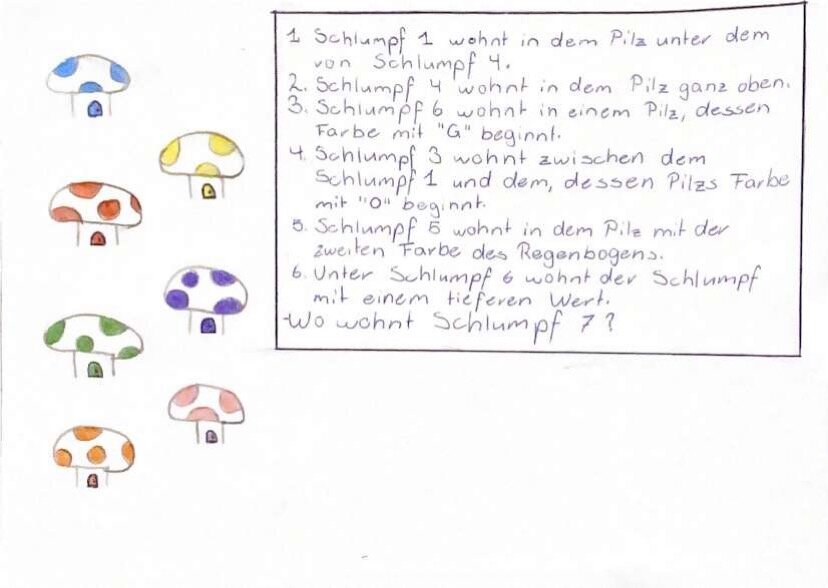 1 Schlumpf 1 wohnt in dem Pilz unter dem
von Schlumpf 4.
2. Schlumpf 4 wohnt in dem Pilz ganz oben.
3. Schlumpf 6 wohnt in einem Pilz, dessen
Farbe mit "G" beginnt.
4. Schlumpf 3 wohnt zwischen dem
Schlumpf 1 und dem, dessen Pilzs Farbe
mit "O" beginnt.
5. Schlumpf 5 wohnt in dem Pilz mit der
zweiten Farbe des Regenbogens.
6. Unter Schlumpf 6 wohnt der Schlumpf
mit einem tieferen Wert.
-Wo wohnt Schlumpf 7?